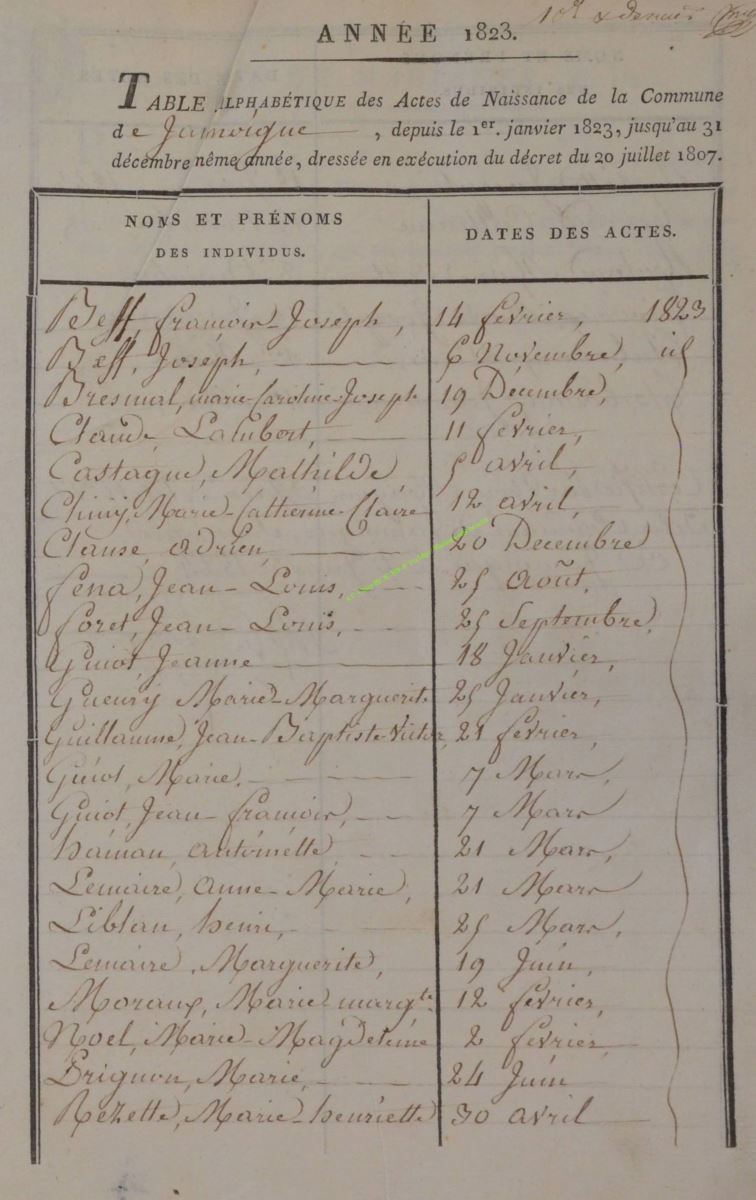 1er & dernier
ANNÉE 1823.
TABLE ALPHABÉTIQUE des Actes de Naissance de la Commune
de Jamoigne, depuis le 1er. janvier 1823, jusqu'au 31
décembre même année, dressée en exécution du décret du 20 juillet 1807.
NOMS ET PRÉNOMS
DES INDIVIDUS.
DATES DES ACTES.
Beff, françois-Joseph, 14 fevrier, 1823
Bæff, Joseph, 6 Novembre, id
Bresmal, marie-Caroline-Joseph 19 Décembre,
Claude Lambert, 11 fevrier,
Castagne, Mathilde 5 avril,
Chiny, Marie-Catherine-Claire 12 avril,
Clause, adrien, 20 Decembre
fena, Jean-Louis, 25 Août,
foret, Jean-Louis, 25 Septembre,
Guiot, Jeanne 18 Janvier,
Gueury Marie-Marguerite 25 Janvier,
Guillaume, Jean-Baptiste-Victor, 21 fevrier,
Guiot, Marie, 7 Mars,
Guiot, Jean-françois, 7 Mars
hainau, antoinette, 21 Mars,
Lemaire, anne-Marie, 21 Mars
Liblan, henri, 25 Mars,
Lemaire, Marguerite, 19 Juin,
Moraux, Marie margte. 12 fevrier,
Noel, Marie-Magdeleine 2 fevrier,
Prignon, Marie, 24 Juin
Rezette, Marie-henriette 30 avril